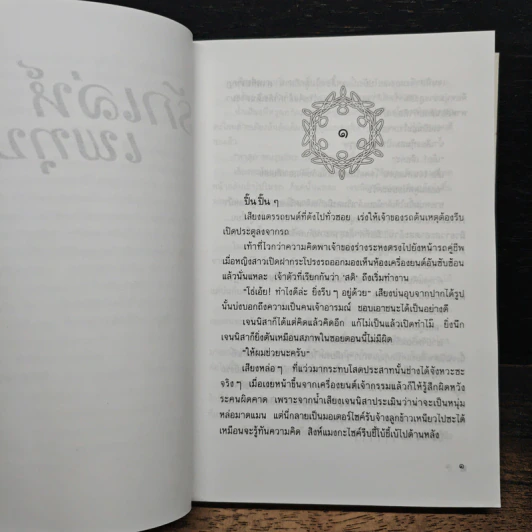 ๑
ปิ๊น ปิ๊น ๆ
เสียงแตรรถยนต์ที่ดังไปทั่วซอย เร่งให้เจ้าของรถต้นเหตุต้องรีบ
เปิดประตูลงจากรถ
เท้าที่ไวกว่าความคิดพาเจ้าของร่างระหงตรงไปยังหน้ารถคู่ชีพ
เมื่อหญิงสาวเปิดฝากระโปรงรถออกมองเห็นห้องเครื่องยนต์อันซับซ้อน
แล้วนั่นแหละ เจ้าตัวที่เรียกกันว่า 'สติ' ถึงเริ่มทำงาน
"โธ่เอ๊ย! ทำไงดีล่ะ ยิ่งรีบ ๆ อยู่ด้วย" เสียงบ่นอุบจากปากได้รูป
นั้นบ่งบอกถึงความเป็นคนเจ้าอารมณ์ ชอบเอาชนะได้เป็นอย่างดี
เจนนิสาก็ได้แต่คิดแล้วคิดอีก แก้ไม่เป็นแล้วเปิดทำไม ยิ่งนึก
เจนนิสาก็ยิ่งตันเหมือนสภาพในซอยตอนนี้ไม่มีผิด
"ให้ผมช่วยนะครับ"
เสียงหล่อ ๆ ที่แว่วมากระทบโสตประสาทนั้นช่างได้จังหวะซะ
จริง ๆ เมื่อเงยหน้าขึ้นจากเครื่องยนต์เจ้ากรรมแล้วก็ให้รู้สึกผิดหวัง
ระคนผิดคาด เพราะจากน้ำเสียงเจนนิสาประเมินว่าน่าจะเป็นหนุ่ม
หล่อมาดแมน แต่นี่กลายเป็นมอเตอร์ไซค์รับจ้างลูกข้าวเหนียวไปซะได้
เหมือนจะรู้ทันความคิด สิงห์แมงกะไซค์รีบชี้โบ๊ชี้เบ๊ไปด้านหลัง
๑